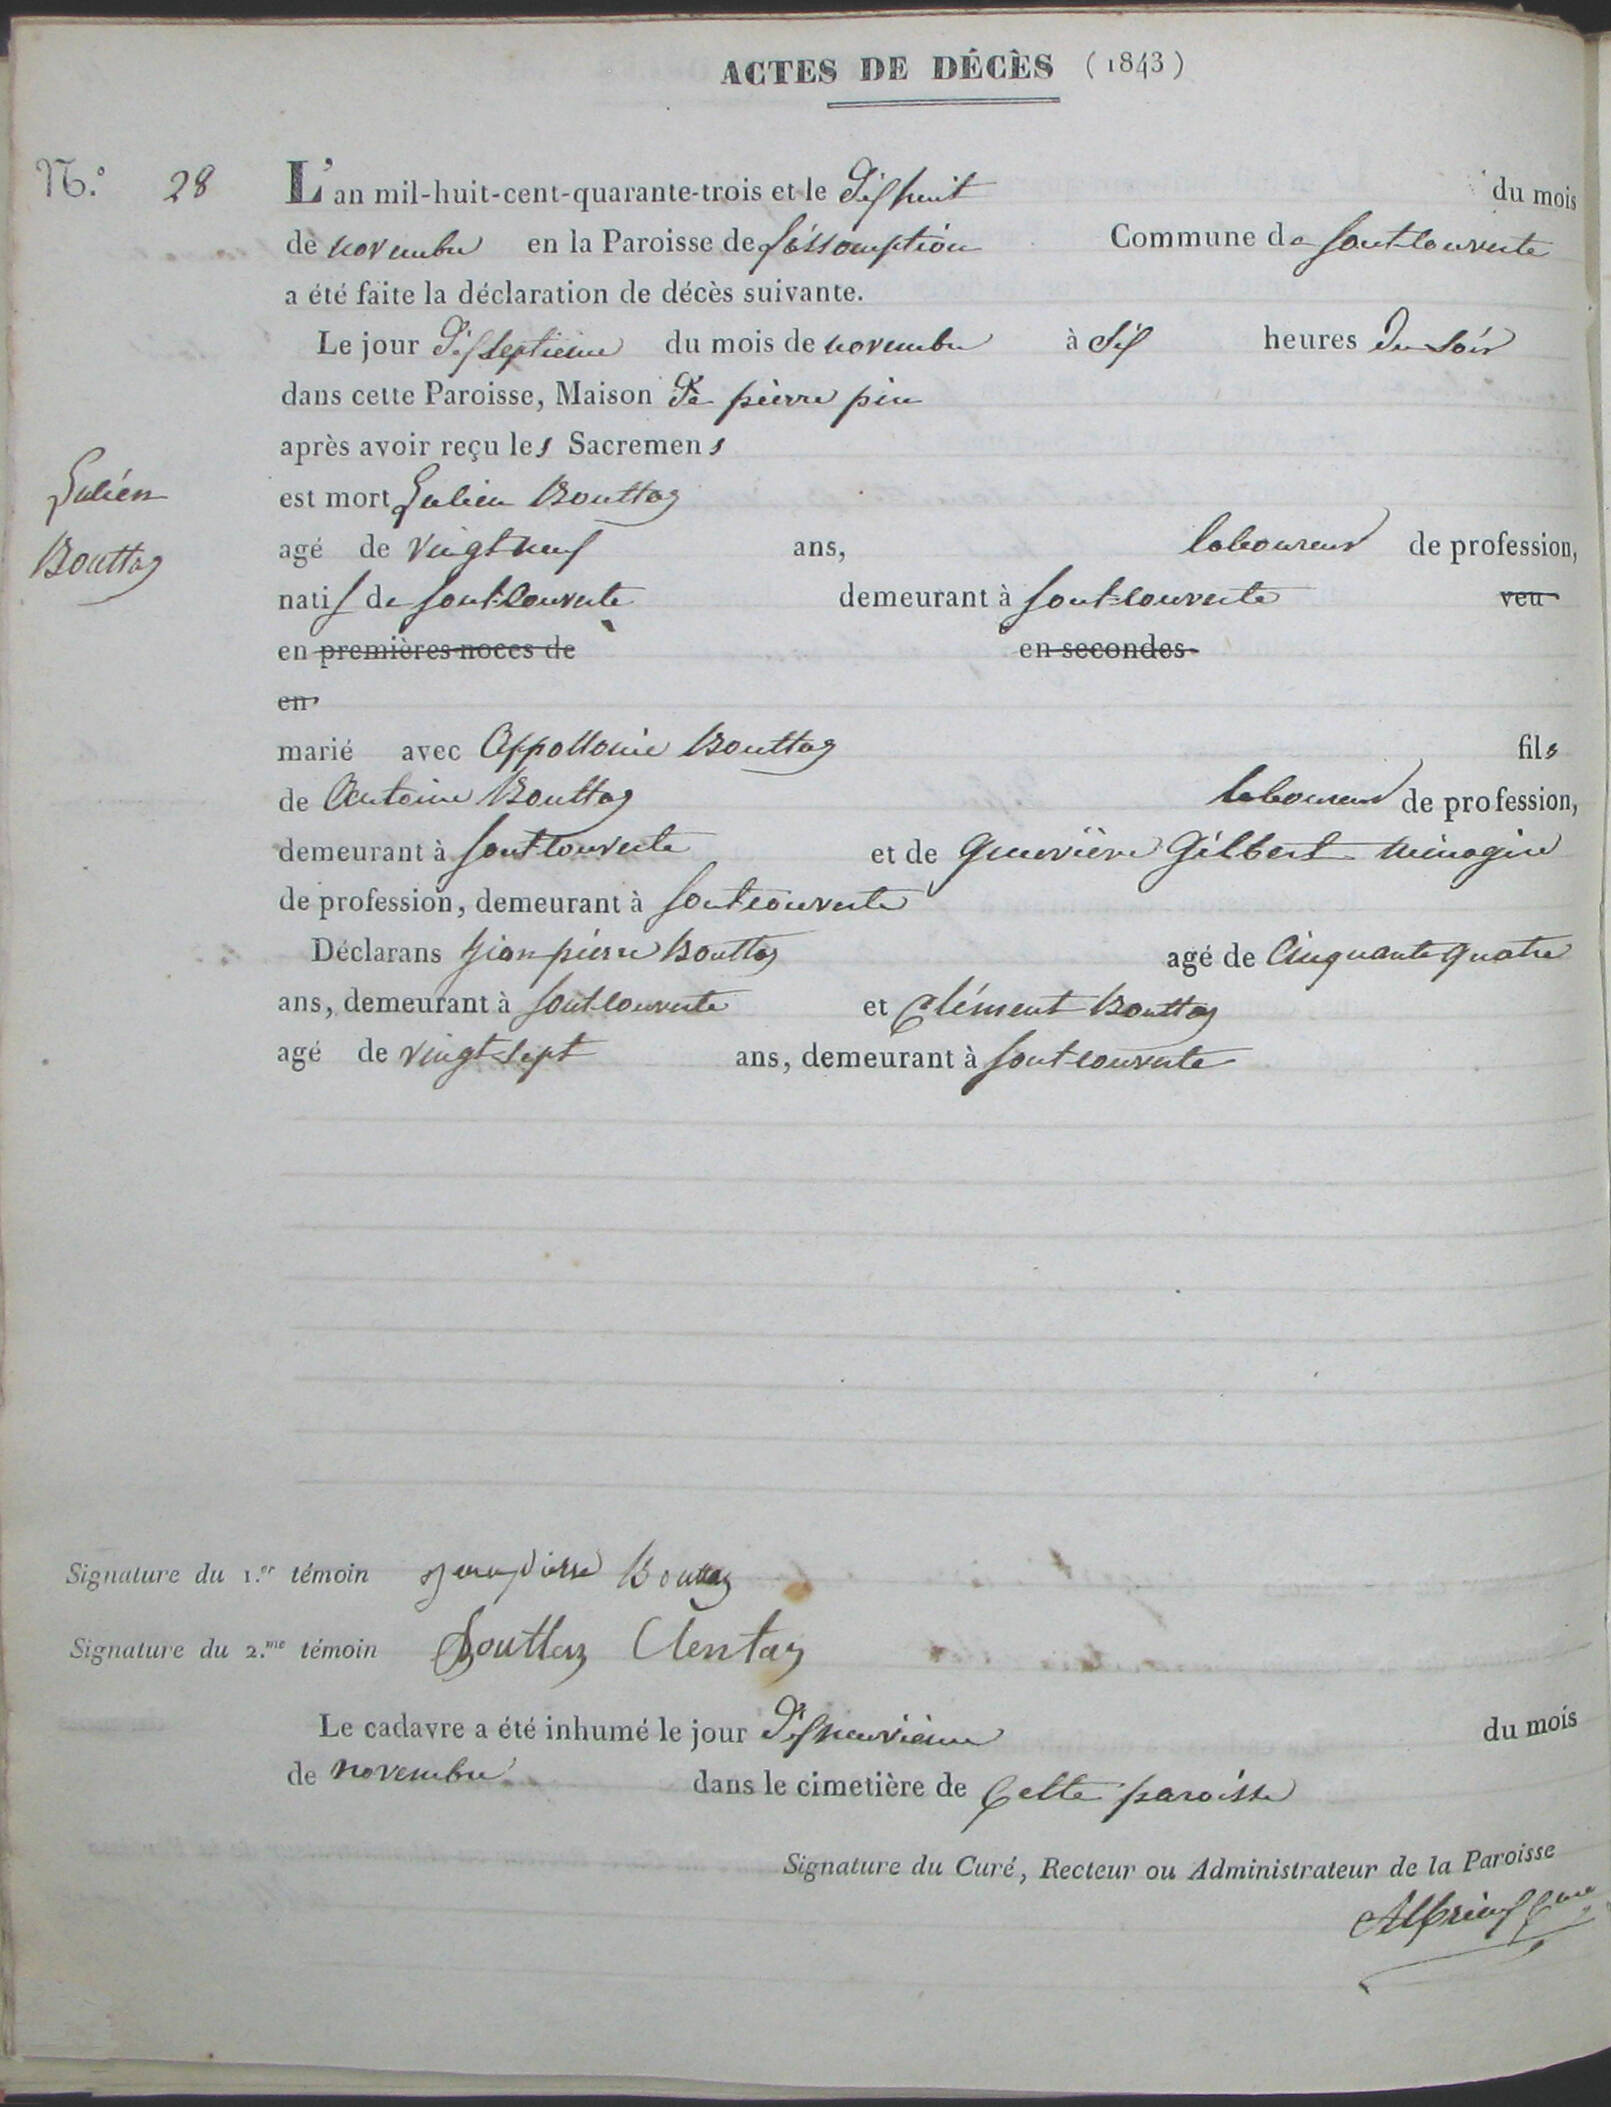 ACTES DE DÉCÈS (1843)
N.º 28
L'an mil-huit-cent-quarante-trois et le dishuit du mois
de novembre en la Paroisse de l'assomption Commune de fontcouverte
a été faite la déclaration de décès suivante.
Le jour disseptieme du mois de novembre à dis heures du soir
dans cette Paroisse, Maison de pierre pin
après avoir reçu les Sacremens
Julien
Bouttaz
est mort Julien Bouttaz
agé de vingt neuf ans, laboureur de profession,
natif de fontcouverte demeurant à fontcouverte veu
en premières noces de en secondes
en
marié avec Appollonie Bouttaz fils
de Antoine Bouttaz laboureur de profession,
demeurant à fontcouverte et de Genevieve Gilbert ménagire
de profession, demeurant à fontcouverte
Déclarans Jean pierre Bouttaz agé de Cinquante quatre
ans, demeurant à fontcouverte et Clément Bouttaz
agé de vingt sept ans, demeurant à fontcouverte
Signature du 1.er témoin Jean pierre Bouttaz
Signature du 2.me témoin Bouttaz
Le cadavre a été inhumé le jour disneuvième du mois
de novembre dans le cimetière de Cette paroisse
Signature du Curé, Recteur ou Administrateur de la Paroisse